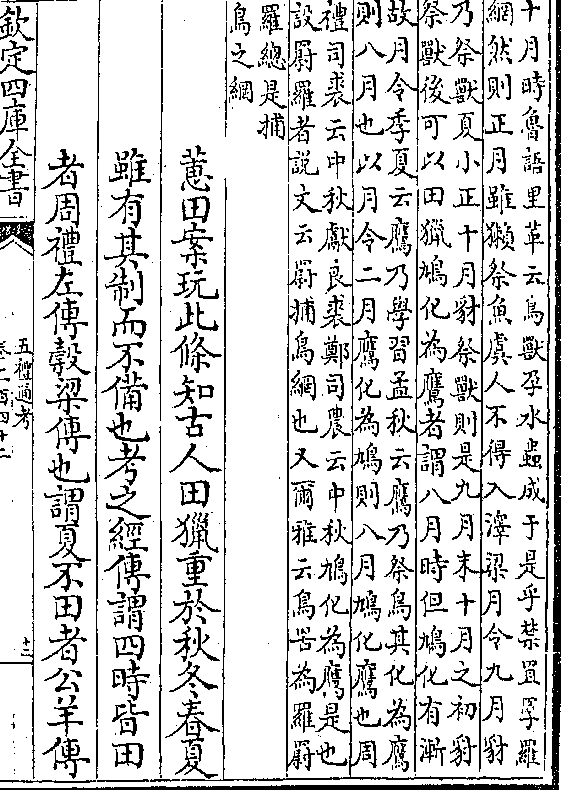 十月時魯語里革云鳥獸孕水蟲成于是乎禁罝罦羅
網然則正月雖獺祭魚虞人不得入澤梁月令九月豺
乃祭獸夏小正十月豺祭獸則是九月末十月之初豺
祭獸後可以田獵鳩化為鷹者謂八月時但鳩化有漸
故月令季夏云鷹乃學習孟秋云鷹乃祭鳥其化為鷹
則八月也以月令二月鷹化為鳩則八月鳩化鷹也周
禮司裘云中秋獻良裘鄭司農云中秋鳩化為鷹是也
設罻羅者說文云罻捕鳥網也又爾雅云鳥罟為羅罻
羅總是捕
鳥之網
蕙田案玩此條知古人田獵重於秋冬春夏
雖有其制而不備也考之經傳謂四時皆田
者周禮左傳穀梁傳也謂夏不田者公羊傳
欽定四庫全書
五禮通考
卷二百四十二
十三